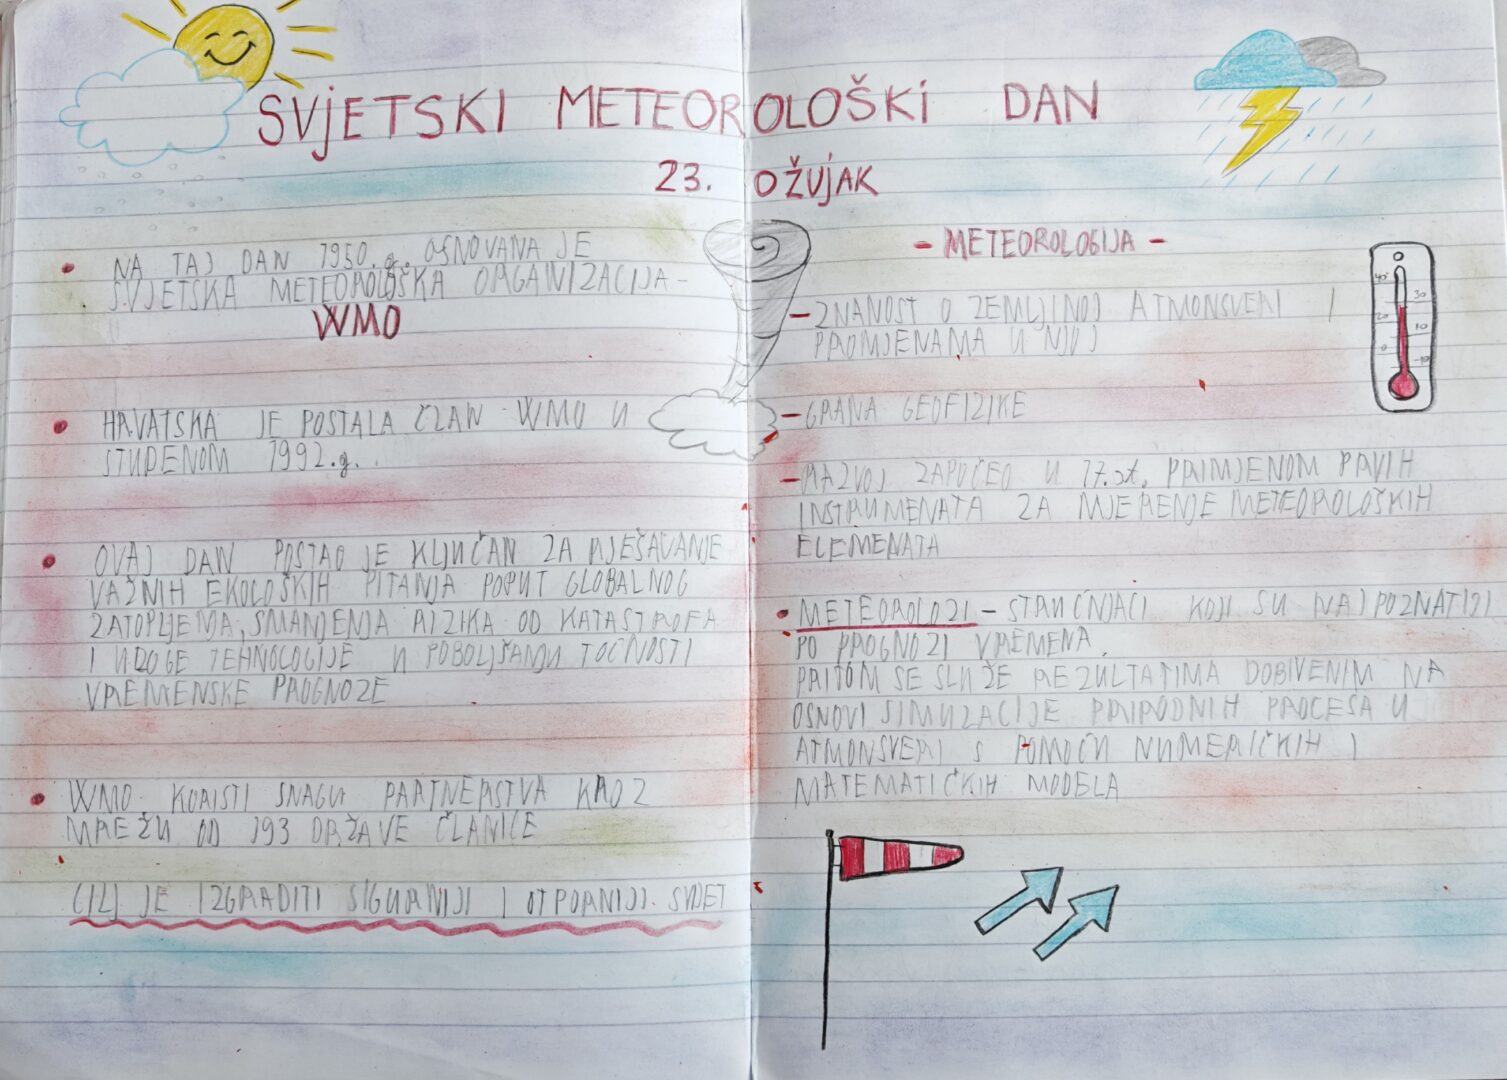 SVJETSKI METEOROLOŠKI DAN
23. OŽUJAK
NA TAJ DAN 1950.g. OSNOVANA JE
SVJETSKA METEOROLOŠKA ORGANIZACIJA -
WMO
HRVATSKA JE POSTALA ČLAN WMO U
STUDENOM 1992.g.
OVAJ DAN POSTAO JE KLJUČAN ZA RJEŠAVANJE
VAŽNIH EKOLOŠKIH PITANJA POPUT GLOBALNOG
ZATOPLJENJA, SMANJENJA RIZIKA OD KATASTROFA
I ULOGE TEHNOLOGIJE U POBOLJŠANJU TOČNOSTI
VREMENSKE PROGNOZE
WMO KORISTI SNAGU PARTNERSTVA KROZ
MREŽU OD 193 DRŽAVE ČLANICE
CILJ JE IZGRADITI SIGURNIJI I OTPORNIJI SVIJET
- METEOROLOGIJA -
- ZNANOST O ZEMLJINOJ ATMONSVERI I
PROMJENAMA U NJOJ
- GRANA GEOFIZIKE
- RAZVOJ ZAPOČEO U 17.st. PRIMJENOM PRVIH
INSTRUMENATA ZA MJERENJE METEOROLOŠKIH
ELEMENATA
METEOROLOZI - STRUČNJACI KOJI SU NAJPOZNATIJI
PO PROGNOZI VREMENA.
PRITOM SE SLUŽE REZULTATIMA DOBIVENIM NA
OSNOVI SIMULACIJE PRIRODNIH PROCESA U
ATMONSVERI S POMOĆU NUMERIČKIH I
MATEMATIČKIH MODELA
40
30
20
10
0
-10